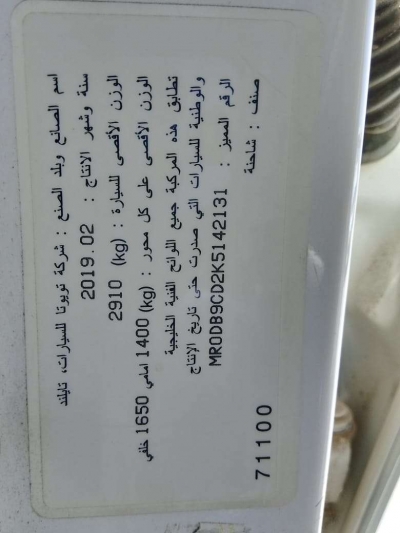 اسم الصانع وبلد الصنع : شركة تويوتا للسيارات، تايلند
سنة وشهر الانتاج : 2019.02
الوزن الأقصى للسيارة : (kg) 2910
الوزن الأقصى على كل محور : (kg) 1400 امامي 1650 خلفي
تطابق هذه المركبة جميع اللوائح الفنية الخليجية
والوطنية للسيارات التي صدرت حتى تاريخ الإنتاج
الرقم المميز : MR0DB9CD2K5142131
صنف : شاحنة
71100